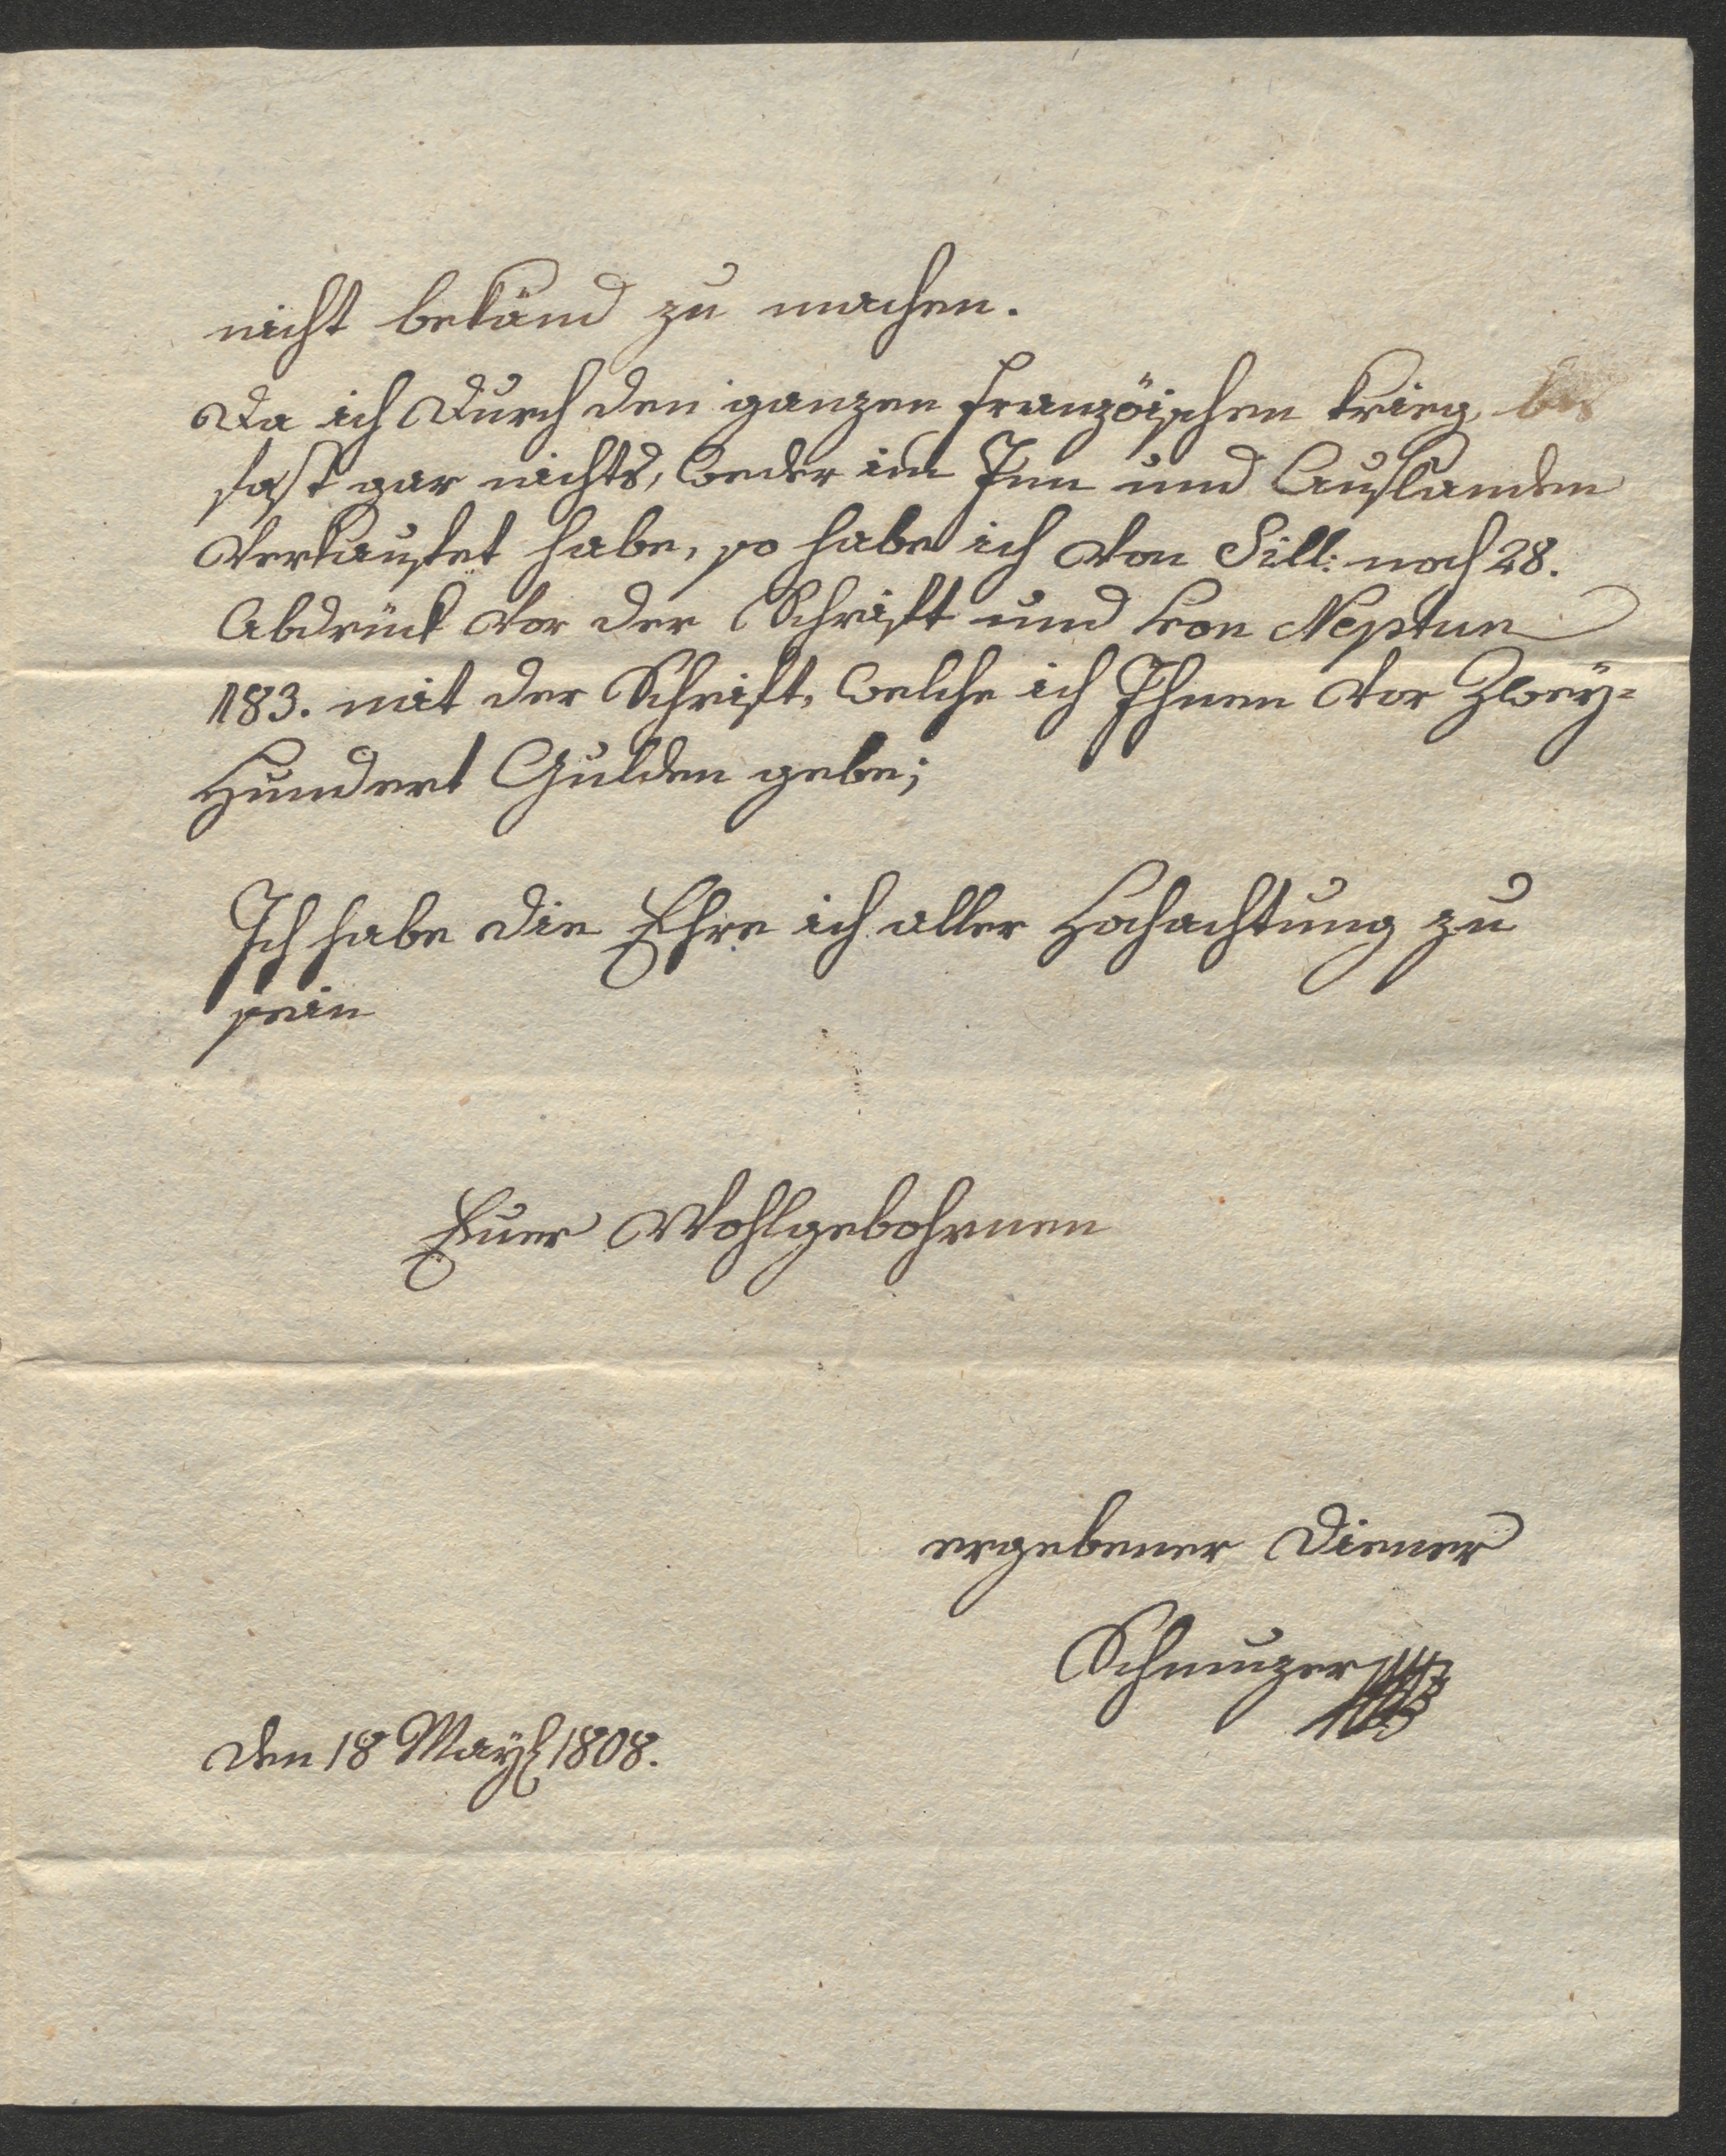 nicht bekānd zu machen.
Da ich durch den ganzen franzöischen Krieg
fast gar nichts, weder im Inn und Auslanden
verkaufet habe, so habe ich von Sill: noch 28.
Abdrück vor der Schrift und von Neptun
183. mit der Schrift, welche ich Ihnen vor Zwey=
Hundert Gulden gebe;
Ich habe die Ehre ich aller Hochachtung zu
sein
Euer Wohlgebohrnen
ergebener Diener
Schmuzer
den 18 May 1808.